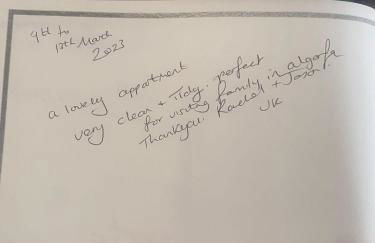 9th to
12th March
2023
a lovely appartment
very clean + Tidy. perfect
for visiting family in algorfa
Thankyou. Racheal + Jason.
UK